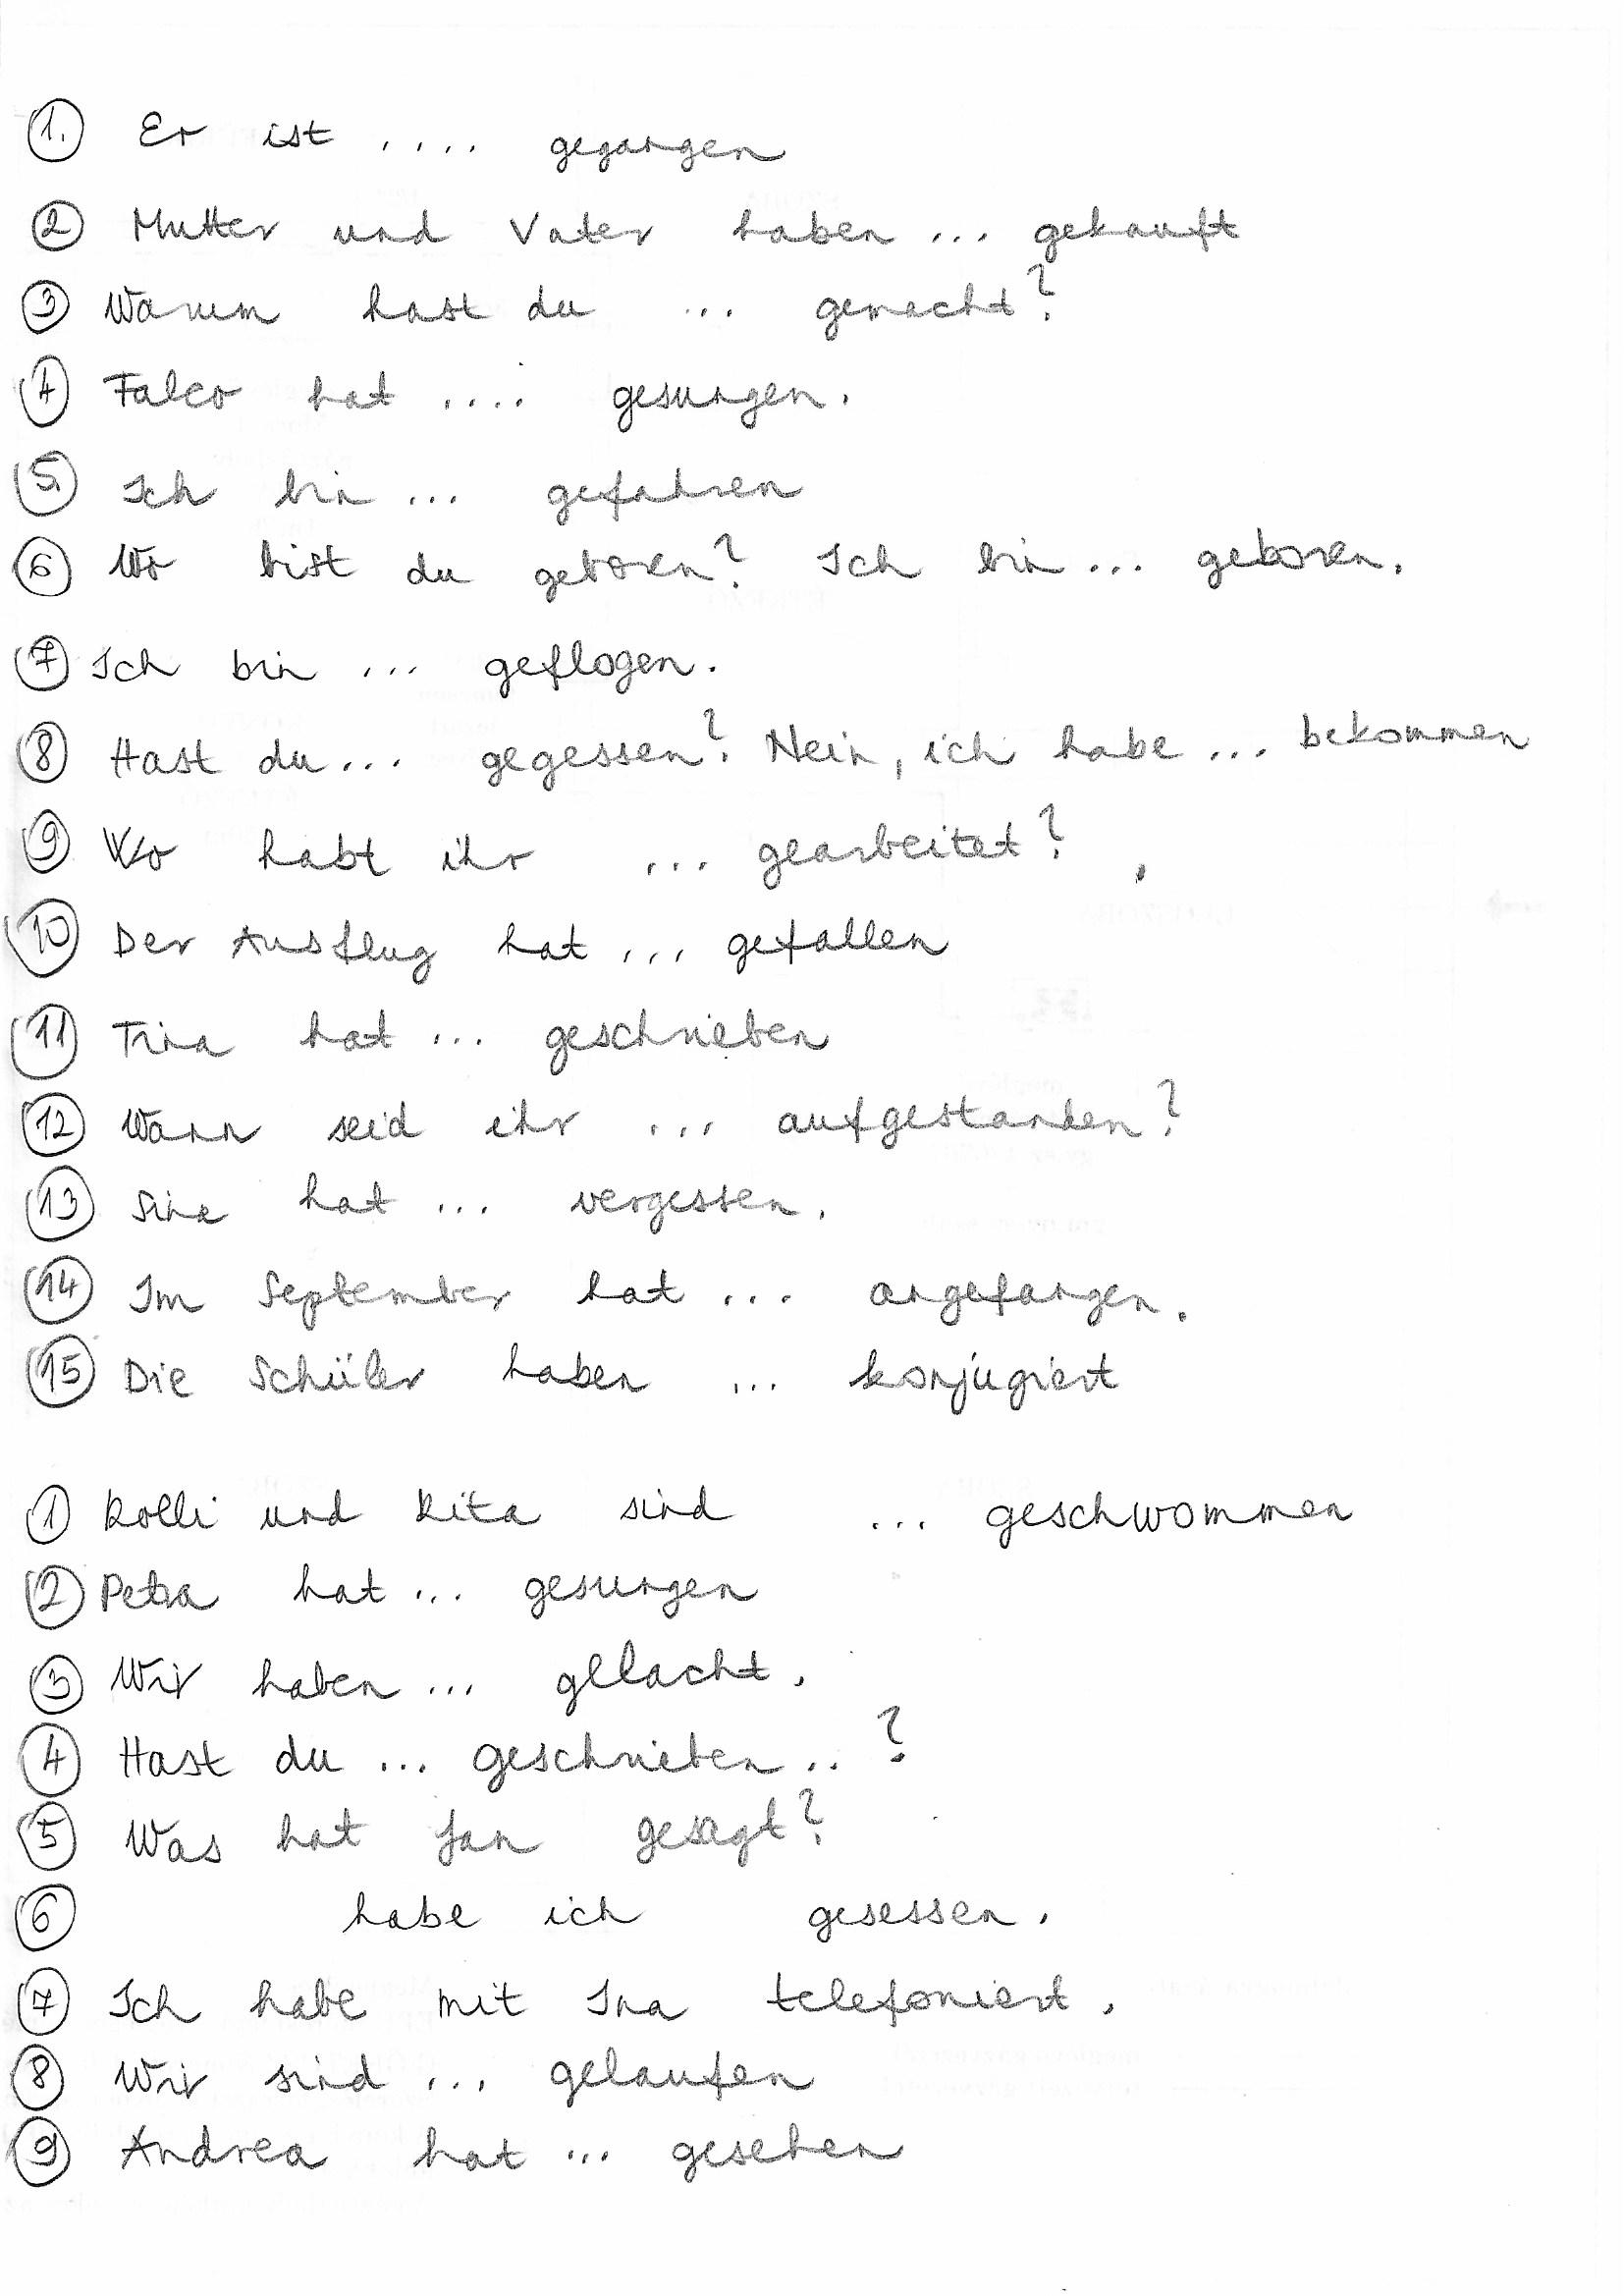 1. Er ist .... gegangen
2 Mutter und Vater haben ... gekauft
3 Warum hast du ... gemacht?
4 Falco hat .... gesungen.
5. Ich bin ... gefahren
6 Wo bist du geboren? Ich bin ... geboren.
7 Ich bin ... geflogen.
8 Hast du ... gegessen? Nein, ich habe ... bekommen
9 Wo habt ihr ... gearbeitet?
10 Der Ausflug hat ... gefallen
11 Tina hat ... geschrieben
12 Wann seid ihr ... aufgestanden?
13 Sina hat ... vergessen.
14 Im September hat ... angefangen.
15 Die Schüler haben ... konjugiert
1 Rolli und Rita sind ... geschwommen
2 Petra hat ... gesungen
3 Wir haben ... gelacht.
4 Hast du ... geschrieben ..?
5 Was hat Jan gesagt?
6 habe ich gesessen.
7 Ich habe mit Ina telefoniert.
8 Wir sind ... gelaufen
9 Andrea hat ... gesehen